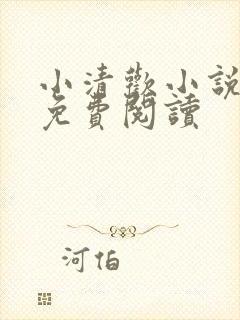 小清歡小說
免費閱讀
河伯